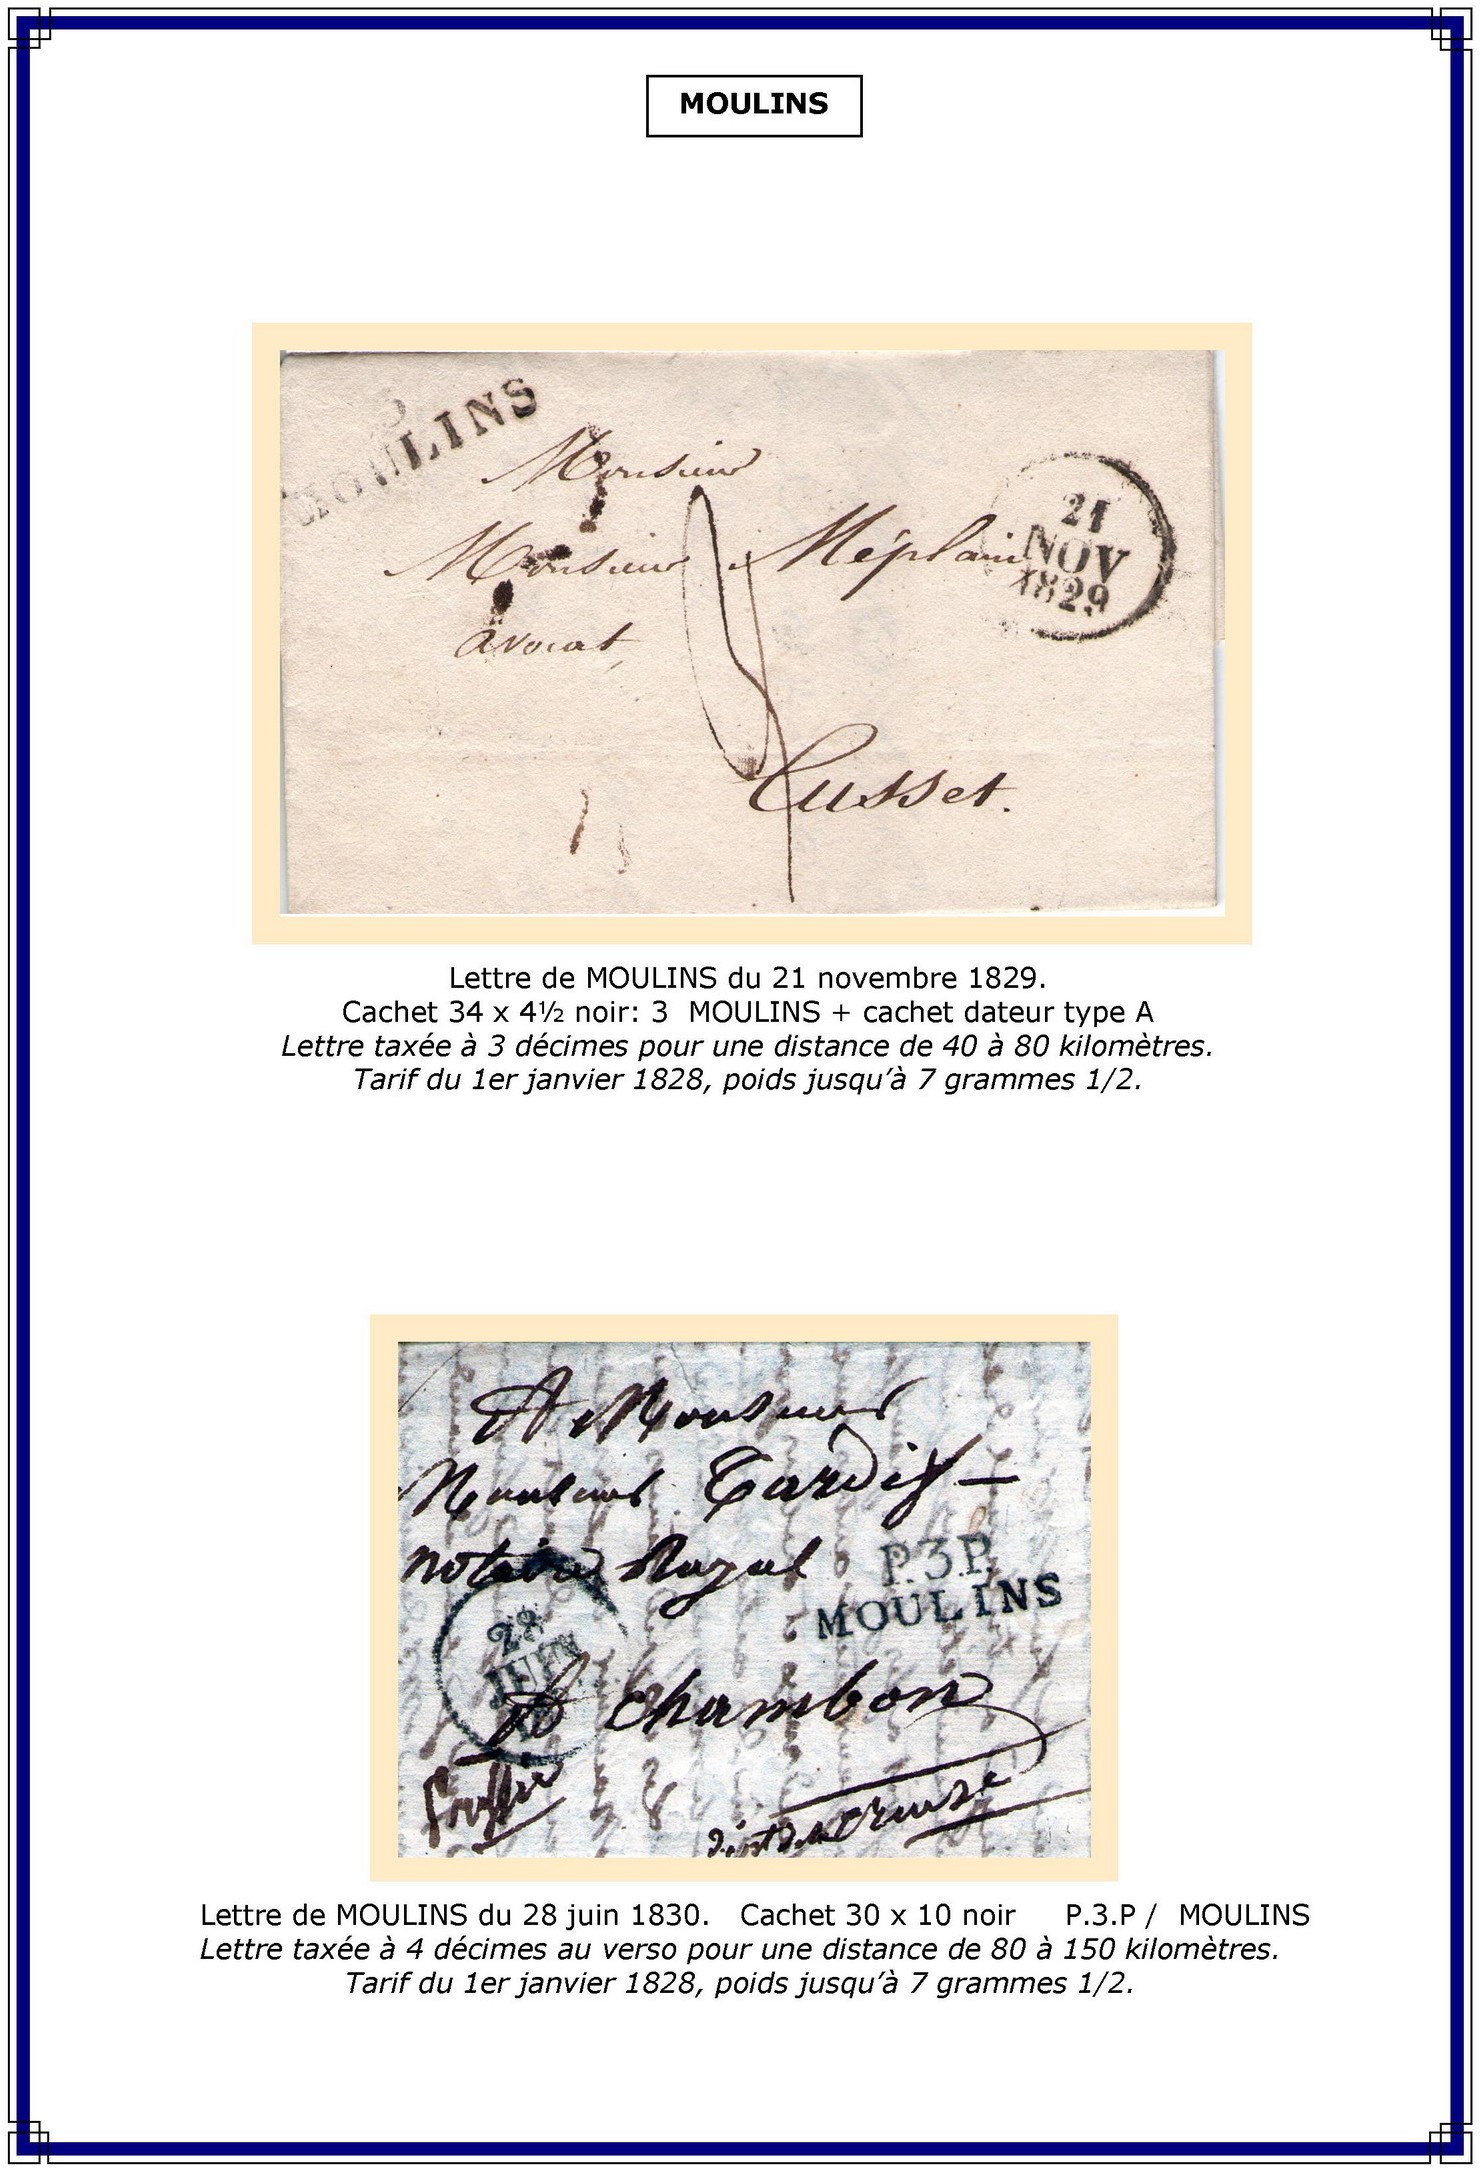 MOULINS
3
MOULINS
Monsieur
Monsieur Méplain
avocat
21
NOV
1829
Cusset.
Lettre de MOULINS du 21 novembre 1829.
Cachet 34 x 4½ noir: 3 MOULINS + cachet dateur type A
Lettre taxée à 3 décimes pour une distance de 40 à 80 kilomètres.
Tarif du 1er janvier 1828, poids jusqu’à 7 grammes 1/2.
A Monsieur
Monsieur Tardif
notaire Royal
P.3.P.
MOULINS
28
JUIN
A Chambon
dépt de la Creuse
Lettre de MOULINS du 28 juin 1830. Cachet 30 x 10 noir P.3.P / MOULINS
Lettre taxée à 4 décimes au verso pour une distance de 80 à 150 kilomètres.
Tarif du 1er janvier 1828, poids jusqu’à 7 grammes 1/2.